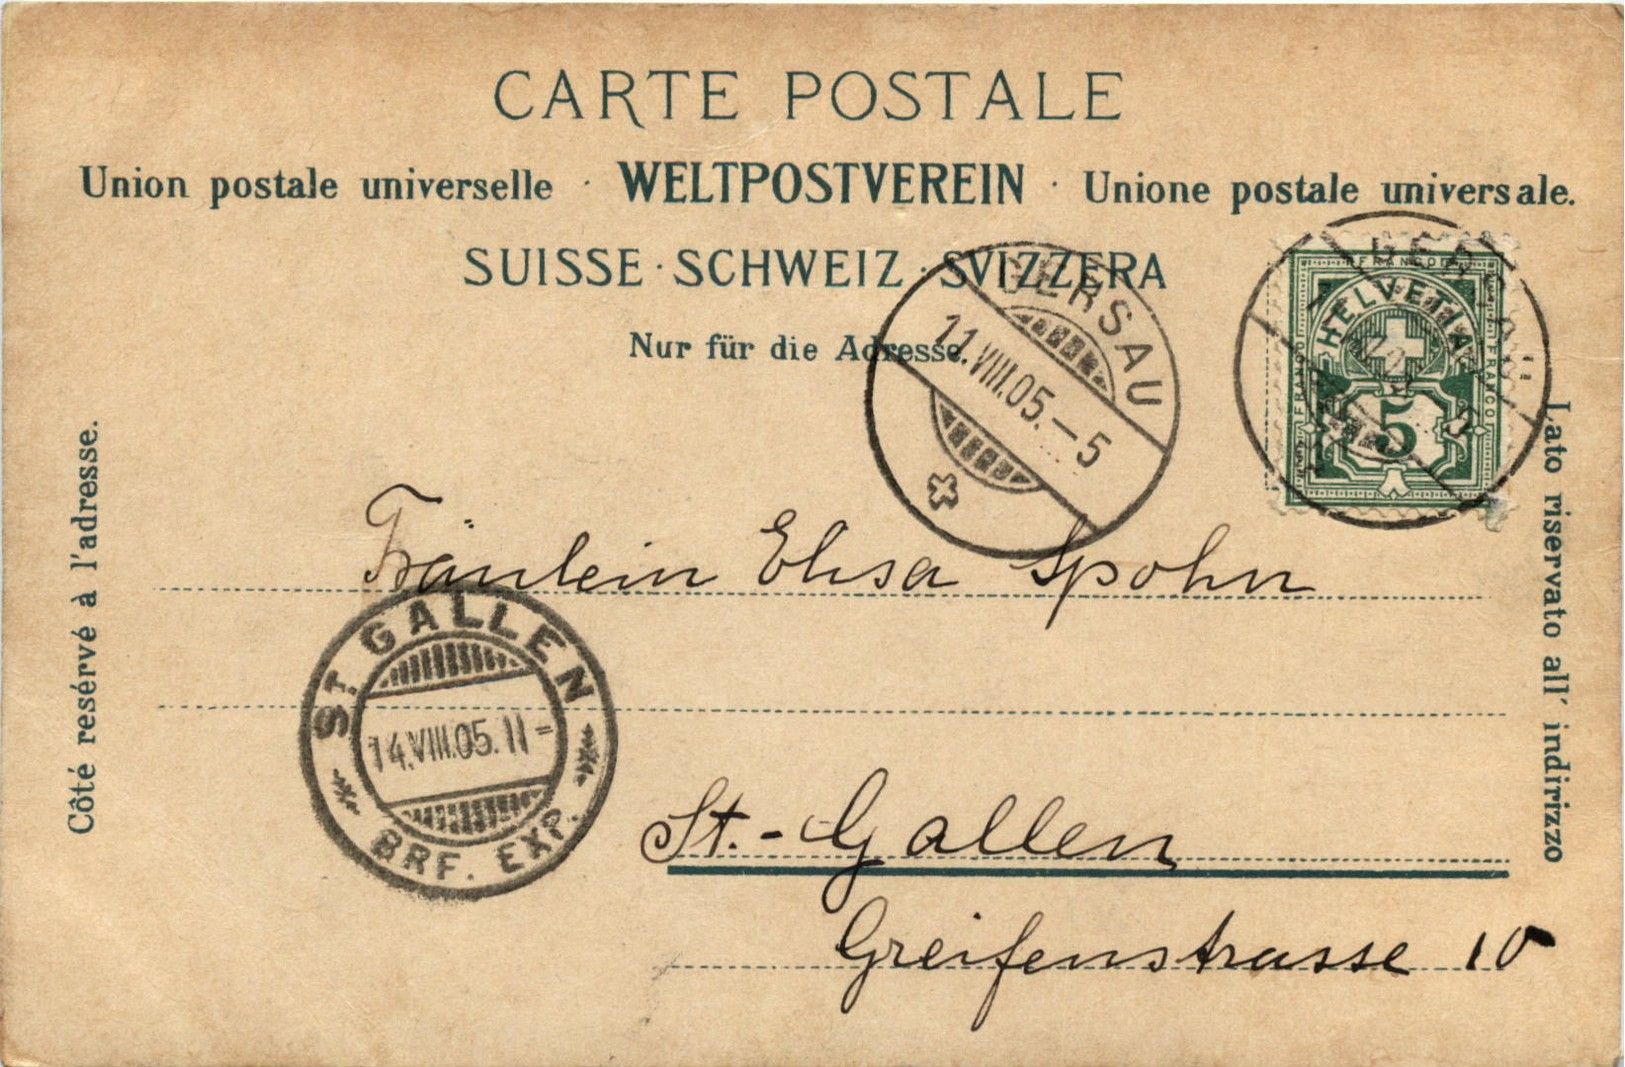 CARTE POSTALE
Union postale universelle · WELTPOSTVEREIN · Unione postale universale.
SUISSE · SCHWEIZ · SVIZZERA
Nur für die Adresse.
Côté resérvé à l'adresse.
Lato riservato all' indirizzo
GERSAU
11.VIII.05.–5
GERSAU
FRANCO
HELVETIA
FRANCO
FRANCO
5
Fräulein Elisa Spohn
ST. GALLEN
14.VIII.05.11–
BRF. EXP.
St.-Gallen
Greifenstrasse 10